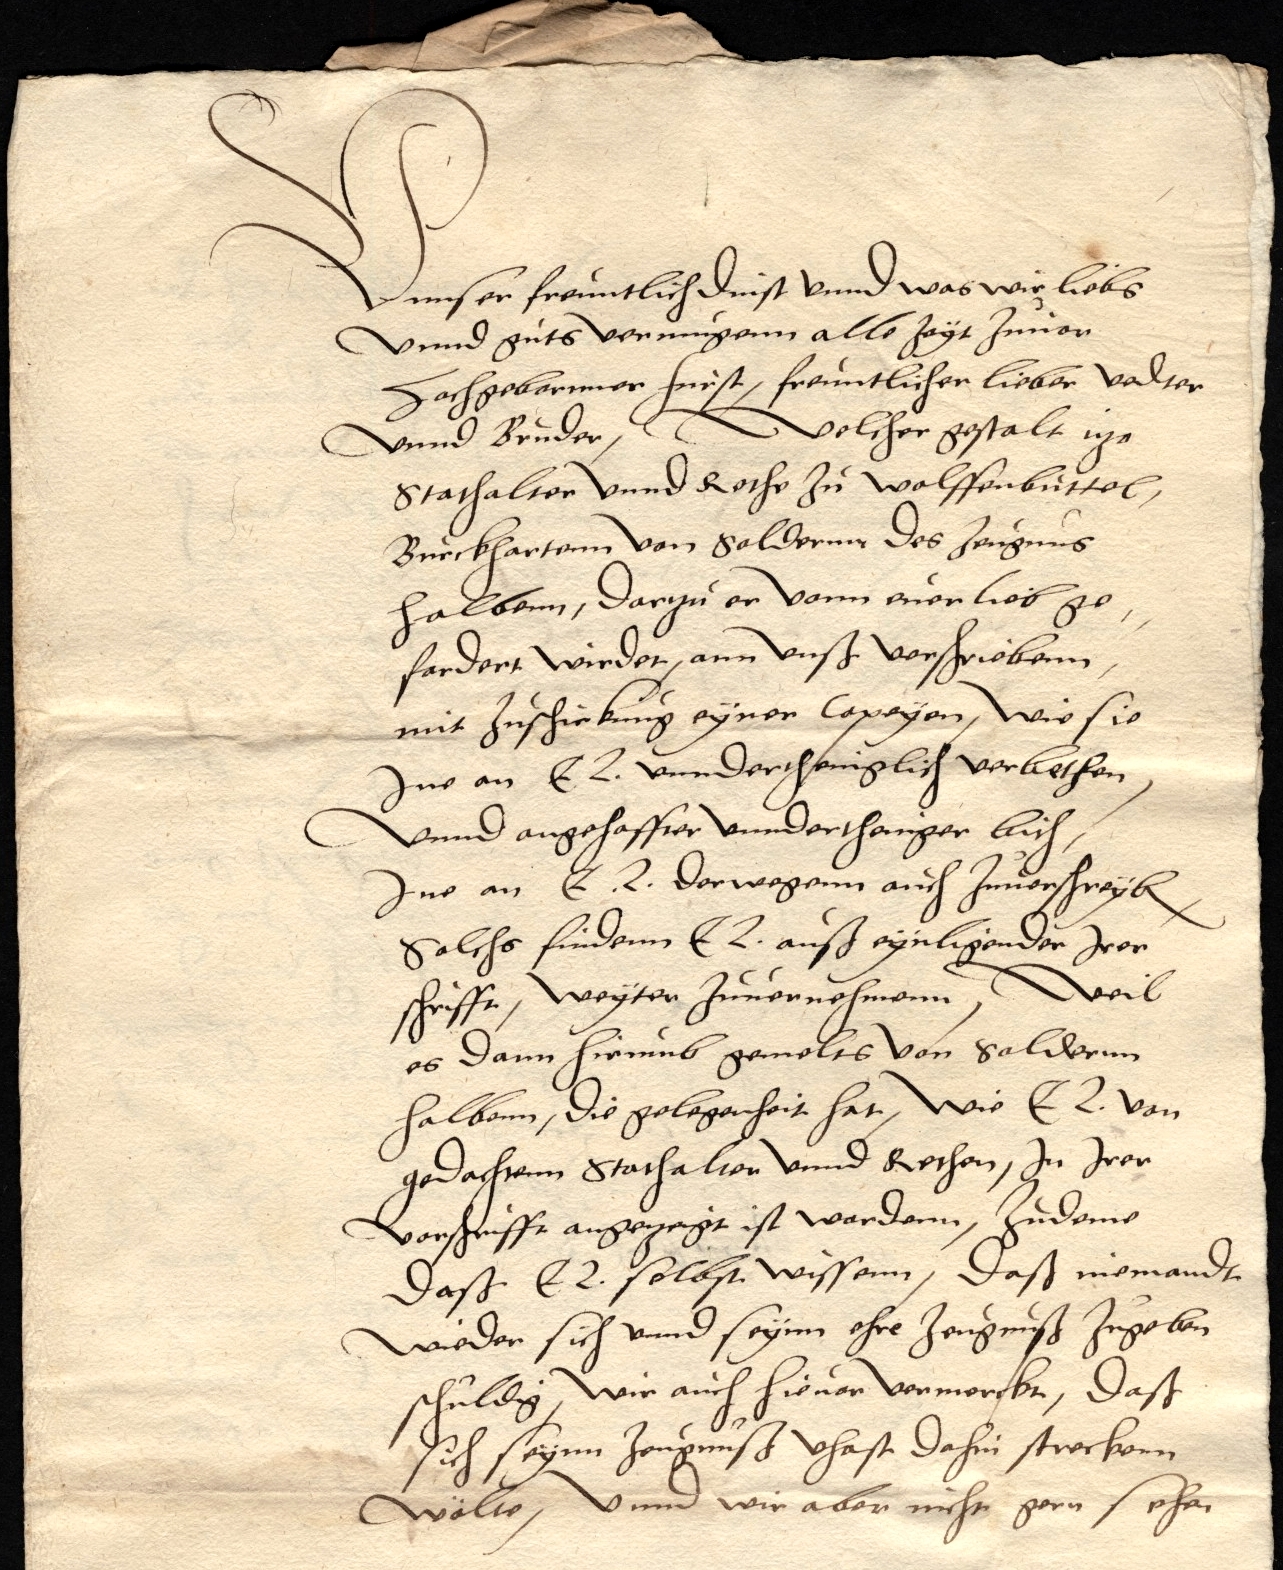 Vnnser freuntlich dinst vnnd was wir liebs
vnnd guts vermugenn alle Zeyt Zuuor
Hochgebornner furst, freuntlicher lieber vedter
vnnd Bruder, Welcher gestalt itze
Stathalter vnnd Rethe Zu Wolffenbuttel,
Burckhartenn von Soldernn des Zeugnus
halbenn, dartzu er vonn euer lieb ge,,
fordert wirdet, ann vnß verschriebenn,
mit Zuschickung eyner Copeyen, wie sie
Ine an E L. vnndertheniglich verbethen,
vnnd angehoffter vnndertheniger bith,
Ine an E. L. derwegenn auch Zuuerschreyb
Solchs findenn E L. auß eynligender Irer
schrifft, weyter Zuuernehmenn, Weil
es dann hirumb gemelts von Soldernn
halbenn, die gelegenheit hat, wie E L. von
gedachtenn Stathalter vnnd Rethen, In Irer
vorschrifft angezeigt ist wordenn, Zudeme
daß E L. selbst wissenn, daß niemandt
wieder sich vnnd seynn ehre Zeugnuß Zugeben
schuldig, wir auch hieuor vermerckt, daß
sich seynn Zeugnuß vhast dahin streckenn
wolte, vnnd wir aber nicht gern sehen